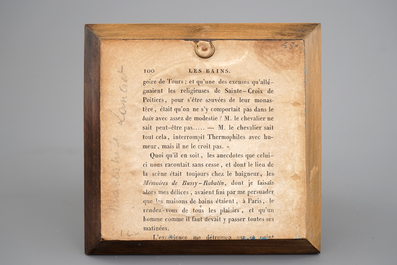 100 LES BAINS.
goire de Tours ; et qu'une des excuses qu'allé-
guaient les religieuses de Sainte-Croix de
Poitiers, pour s'être sauvées de leur monas-
tère, était qu'on ne s'y comportait pas dans le
bain avec assez de modestie ! M. le chevalier ne
sait peut-être pas..... — M. le chevalier sait
tout cela, interrompit Thermophiles avec hu-
meur, mais il ne le croit pas. »
Quoi qu'il en soit, les anecdotes que celui-
ci nous racontait sans cesse, et dont le lieu de
la scène était toujours chez le baigneur, les
Mémoires de Bussy-Rabutin, dont je faisais
alors mes délices, avaient fini par me persuader
que les maisons de bains étaient, à Paris, le
rendez-vous de tous les plaisirs, et qu'un
homme comme il faut devait y passer toutes ses
matinées.
L'expérience me détrompa